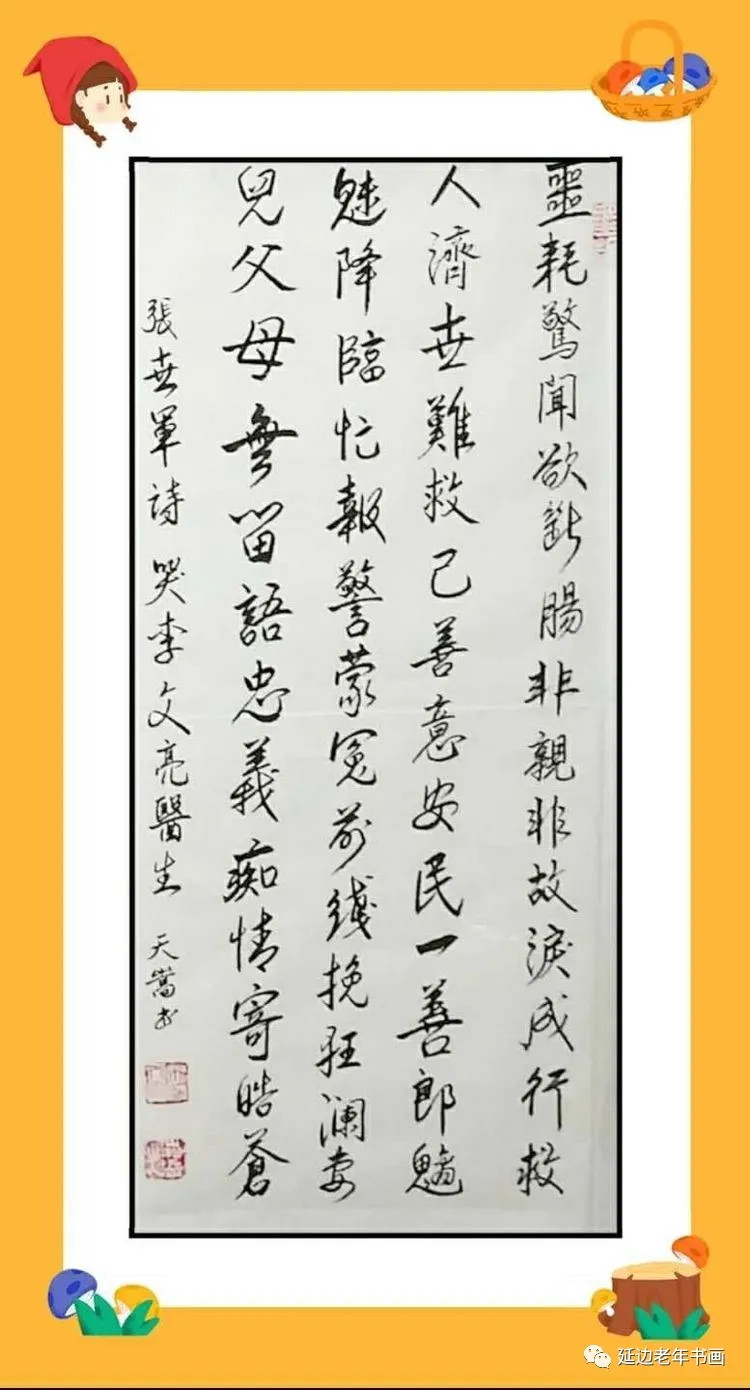 噩耗驚聞欲斷腸非親非故淚成行救
人濟世難救己善意安民一善郎魑
魅降臨忙報警蒙冤前綫挽狂澜妻
兒父母無留語忠義痴情寄皓蒼
張世軍詩 哭李文亮醫生 天嵩书
延边老年书画